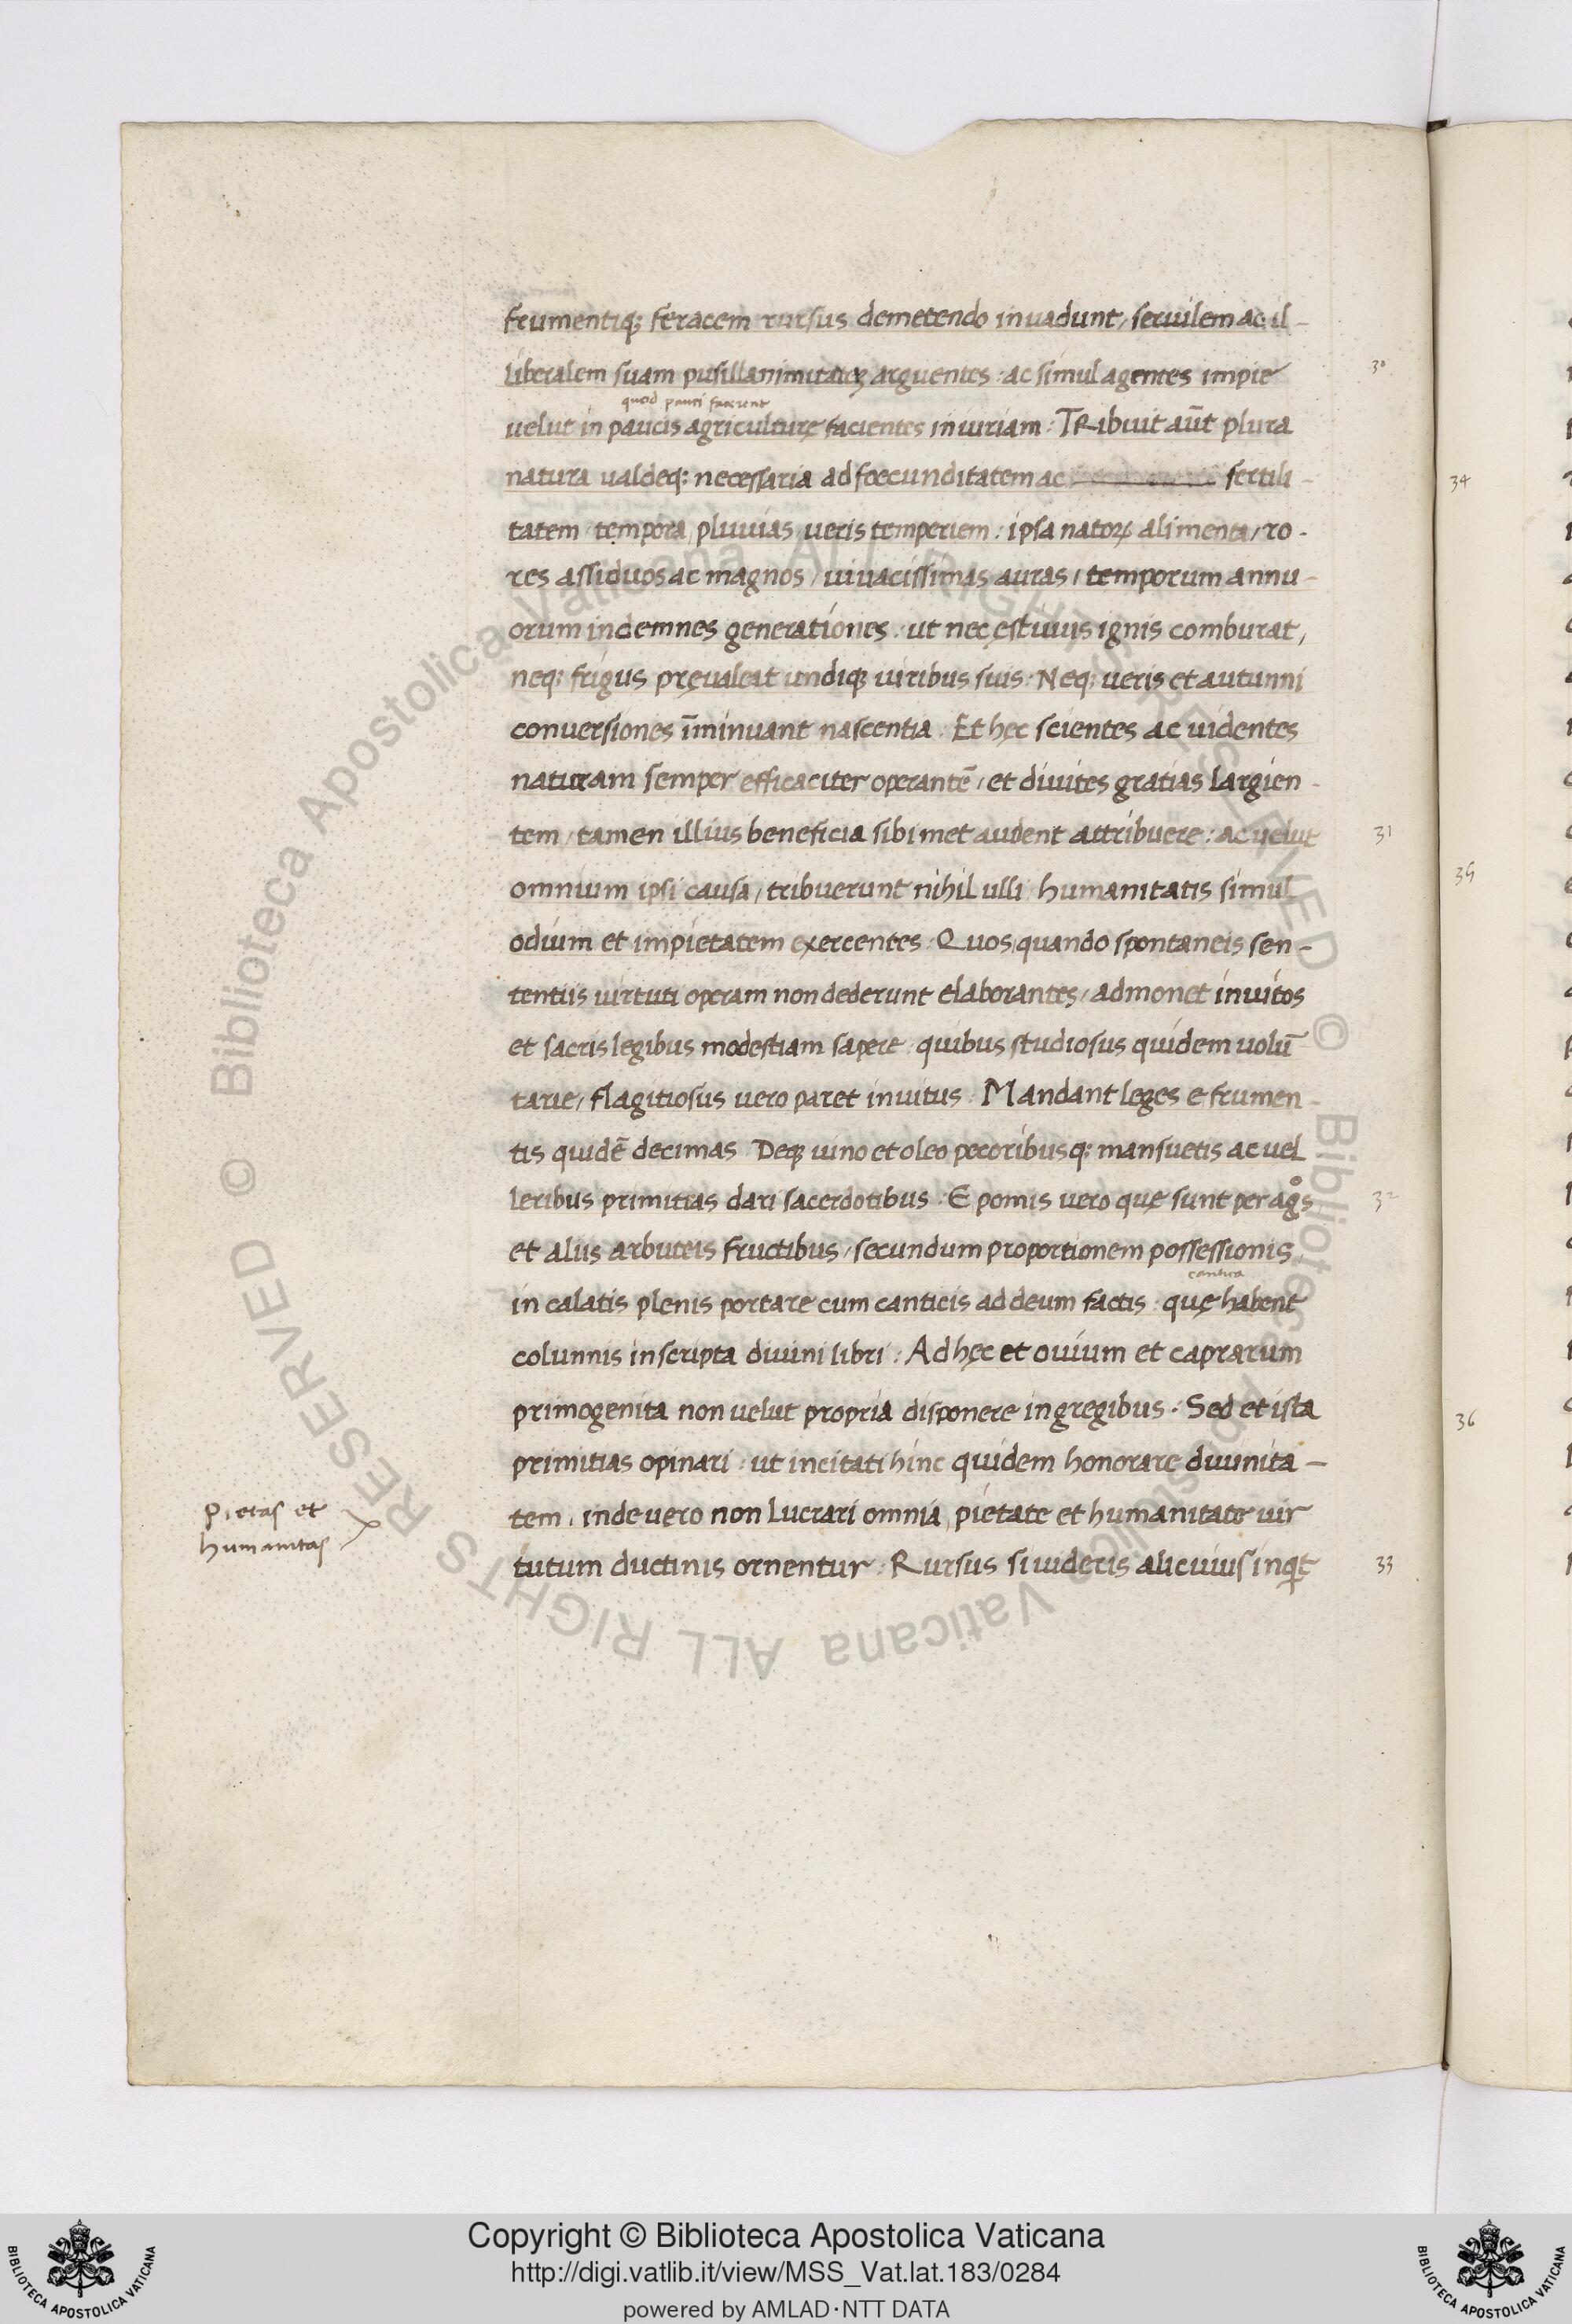 frumentiq; feracem rursus demetendo inuadunt, seruilem ac il-
liberalem suam pusillanimitatẽ arguentes : ac simul agentes impie
30
quod pauci faciunt
velut in paucis agriculturę facientes iniuriam : TRibuit aūt plura
natura ualdeq: necessaria ad foecunditatem ac fertili-
34
tatem tempora, pluuias ueris temperiem : ipsa natoꝝ alimenta, ro-
res assiduos ac magnos, uiuacissimas auras, temporum annu-
orum indemnes generationes : ut nec ęstiuus ignis comburat,
neq: frigus pręualeat undiq; uiribus suis. Neq: ueris et autunni
conuersiones īminuant nascentia. Et hęc scientes ac uidentes
naturam semper efficaciter operantē, et diuites gratias largien-
tem, tamen illius beneficia sibi met audent attribuere : ac uelut
31
omnium ipsi causa, tribuerunt nihil ulli humanitatis simul
35
odium et impietatem exercentes. Quos quando spontaneis sen-
tentiis uirtuti operam non dederunt elaborantes, admonet inuitos
et sacris legibus modestiam sapere. quibus studiosus quidem uolū
tarie, flagitiosus uero paret inuitus. Mandant leges e frumen-
tis quidē decimas Deq; uino et oleo pecoribusq: mansuetis ac uel
leribus primitias dari sacerdotibus. E pomis uero quę sunt per ag̊s
32
et aliis arbuteis fructibus, secundum proportionem possessionis,
cantica
in calatis plenis portare cum canticis ad deum factis : quę habent
colunnis inscripta diuini libri : Ad hęc et ouium et caprarum
primogenita non uelut propria disponere in gregibus. Sed et ista
36
primitias opinari : ut incitati hinc quidem honorare diuinita-
tem, inde uero non lucrari omnia, pietate et humanitate uir
Pietas et
humanitas
tutum ductinis ornentur : Rursus si uideris alicuius inq̇t
33
© Biblioteca Apostolica Vaticana ALL RIGHTS RESERVED © Biblioteca Apostolica Vaticana ALL RIGHTS RESERVED
Copyright © Biblioteca Apostolica Vaticana
http://digi.vatlib.it/view/MSS_Vat.lat.183/0284
powered by AMLAD·NTT DATA
BIBLIOTECA APOSTOLICA VATICANA
BIBLIOTECA APOSTOLICA VATICANA